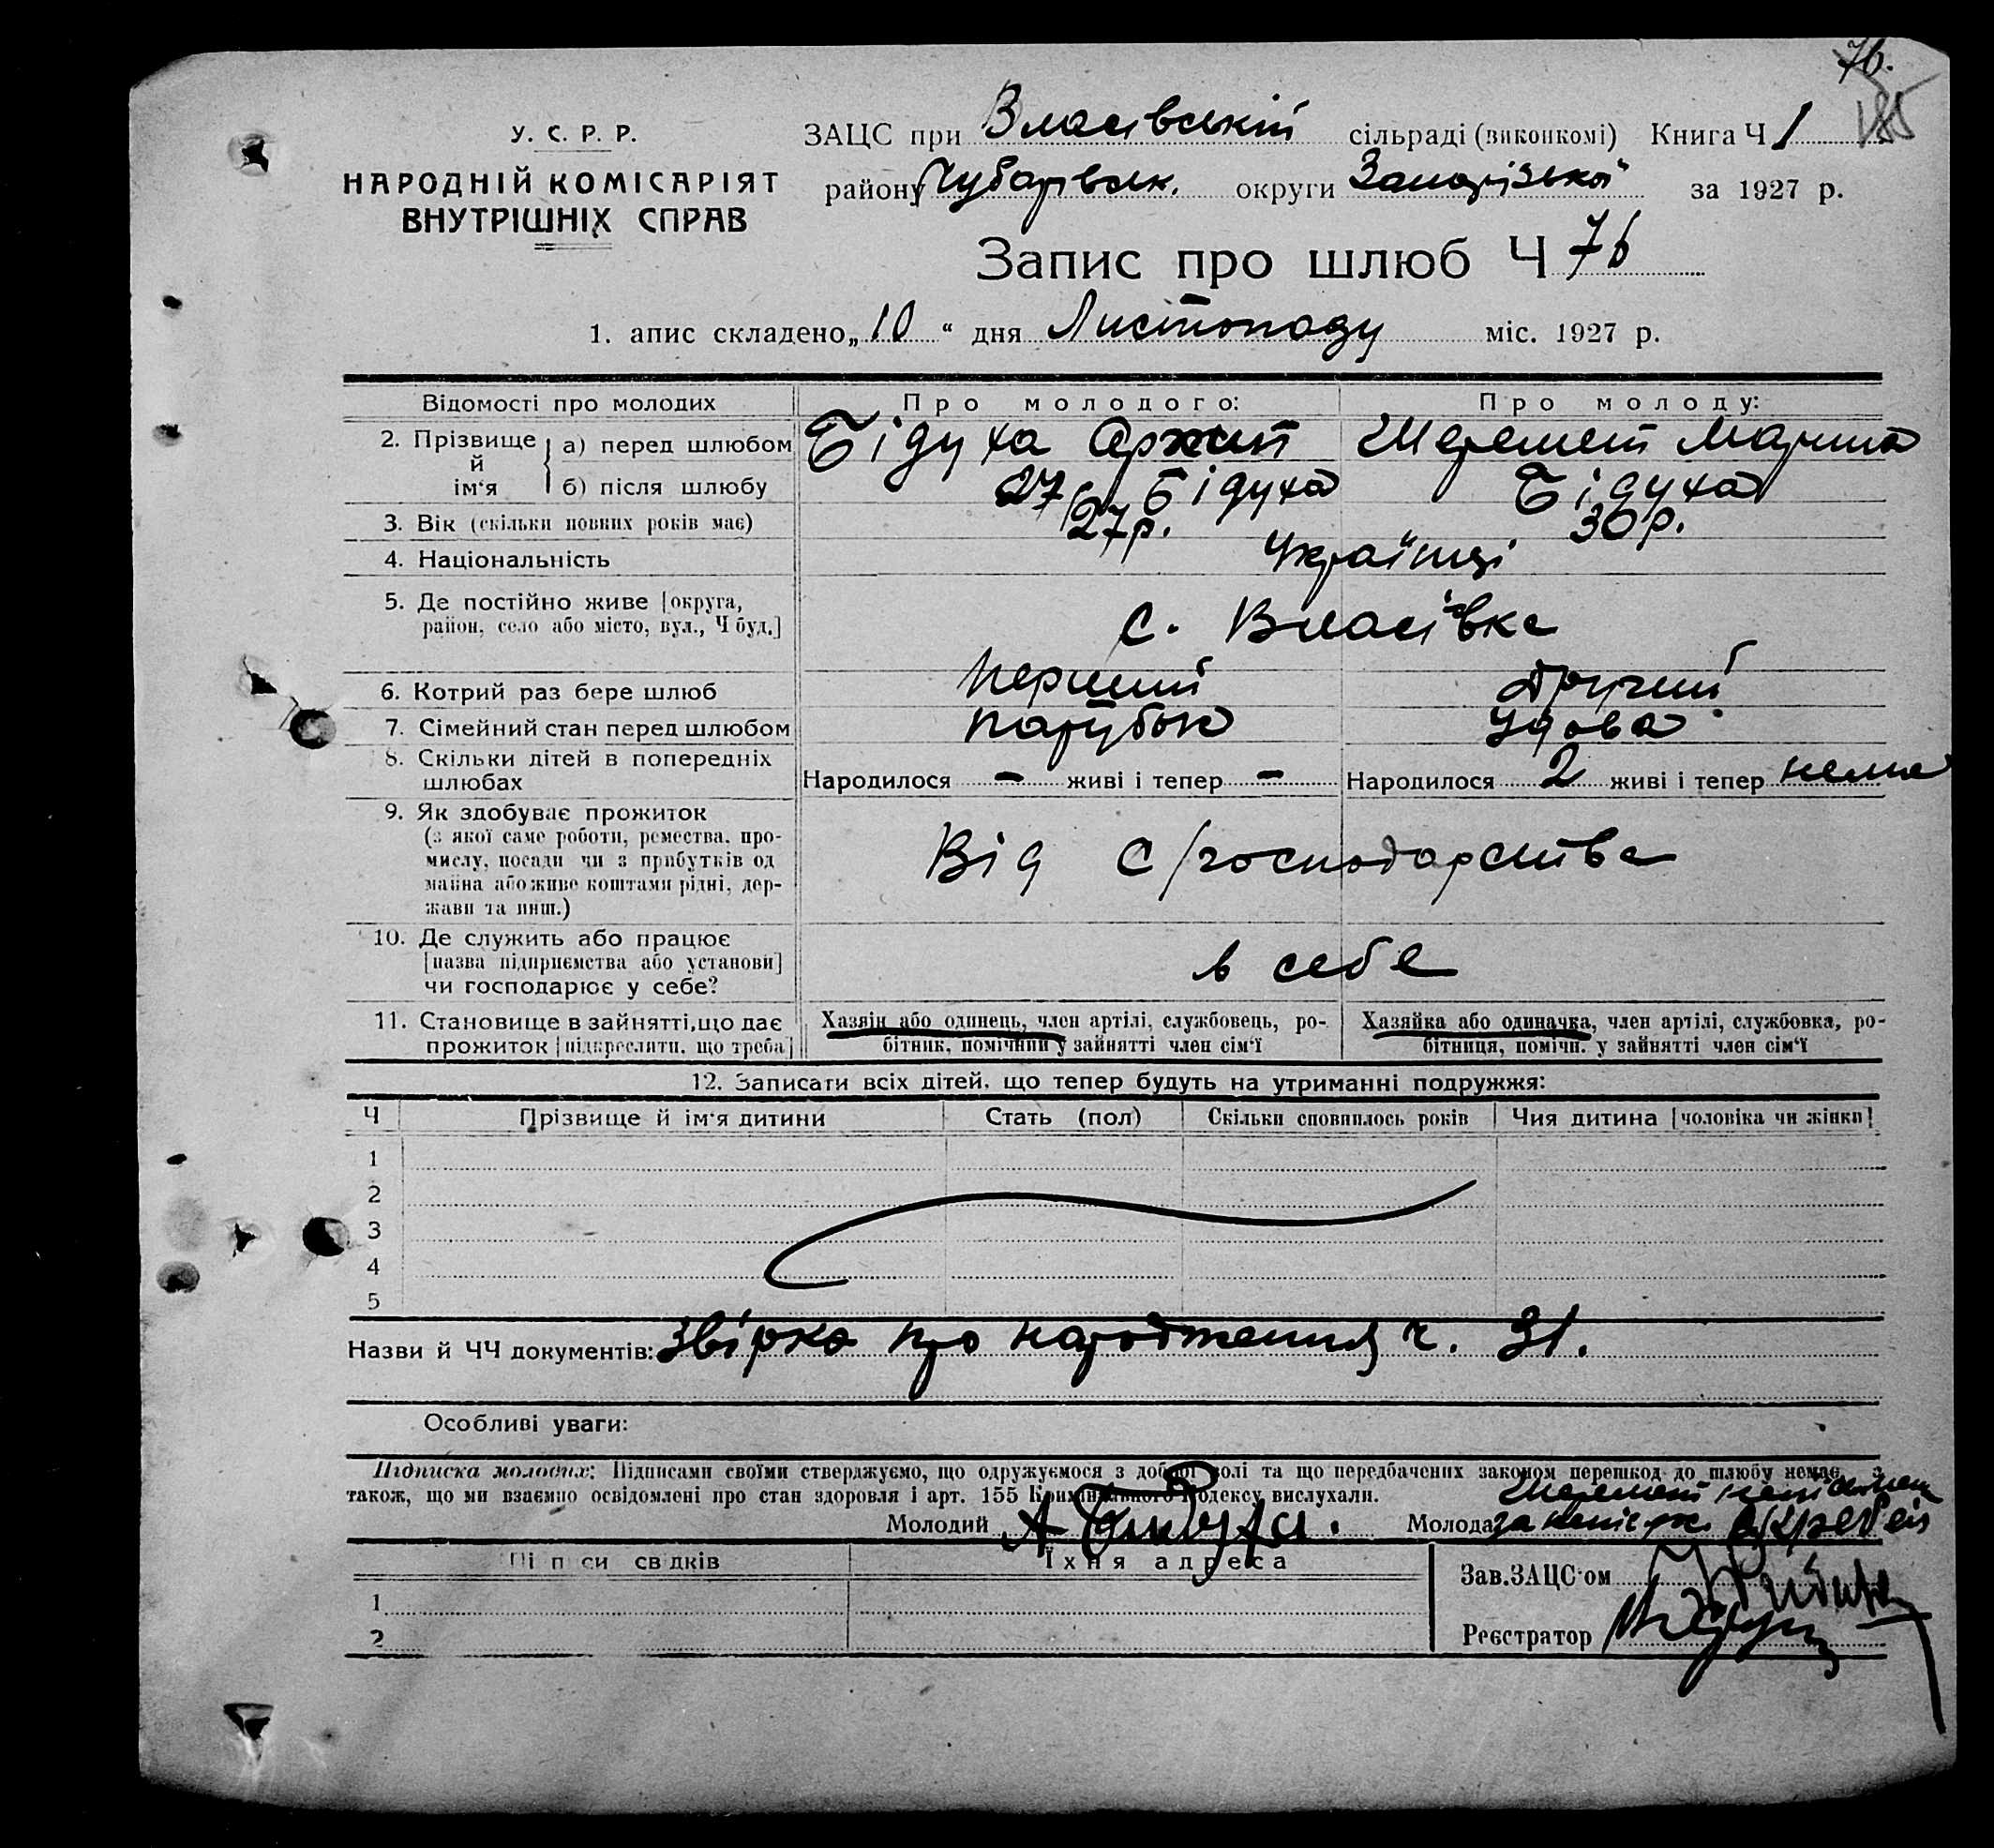 76.
185
У. С. Р. Р.
НАРОДНІЙ КОМІСАРІЯТ
ВНУТРІШНІХ СПРАВ
ЗАЦС при Власівській сільраді (виконкомі) Книга Ч 1
району Чубарівськ. округи Запорізької за 1927 р.
Запис про шлюб Ч 76
1. апис складено „ 10 “ дня Листопаду міс. 1927 р.
Відомості про молодих Про молодого: Про молоду:
2. Прізвище й ім‘я а) перед шлюбом Бідуха Архип Шеремет Марина
б) після шлюбу 27р Бідуха Бідуха
3. Вік (скільки повних років має) 27р. 30р.
4. Національність Українці
5. Де постійно живе [округа,
район, село або місто, вул., Ч буд.] С. Власівка
6. Котрий раз бере шлюб перший другий
7. Сімейний стан перед шлюбом парубок удова
8. Скільки дітей в попередніх
шлюбах Народилося - живі і тепер - Народилося 2 живі і тепер нема
9. Як здобуває прожиток
(з якої саме роботи, ремества, про-
мислу, посади чи з прибутків од
майна або живе коштами рідні, дер-
жави та инш.)
Від с/господарства
10. Де служить або працює
[назва підприємства або установи]
чи господарює у себе?
в себе
11. Становище в зайнятті, що дає
прожиток [підкреслити, що треба]
Хазяїн або одинець, член артілі, службовець, ро-
бітник, помічний у зайнятті член сім‘ї
Хазяйка або одиначка, член артілі, службовка, ро-
бітниця, помічн. у зайнятті член сім‘ї
12. Записати всіх дітей, що тепер будуть на утриманні подружжя:
Ч Прізвище й ім‘я дитини Стать (пол) Скільки сповнилось років Чия дитина [чоловіка чи жінки]
1
2
3
4
5
Назви й ЧЧ документів: Звірка про народження ч. 31.
Особливі уваги:
Підписка молодих: Підписами своїми стверджуємо, що одружуємося з доброї волі та що передбачених законом перешкод до шлюбу немає, а
також, що ми взаємно освідомлені про стан здоровля і арт. 155 Кримінального Кодексу вислухали.
Молодий А Бидуха. Молода Шеремет
Підписи свідків Їхня адреса
1
2
Зав. ЗАЦС‘ом
Реєстратор